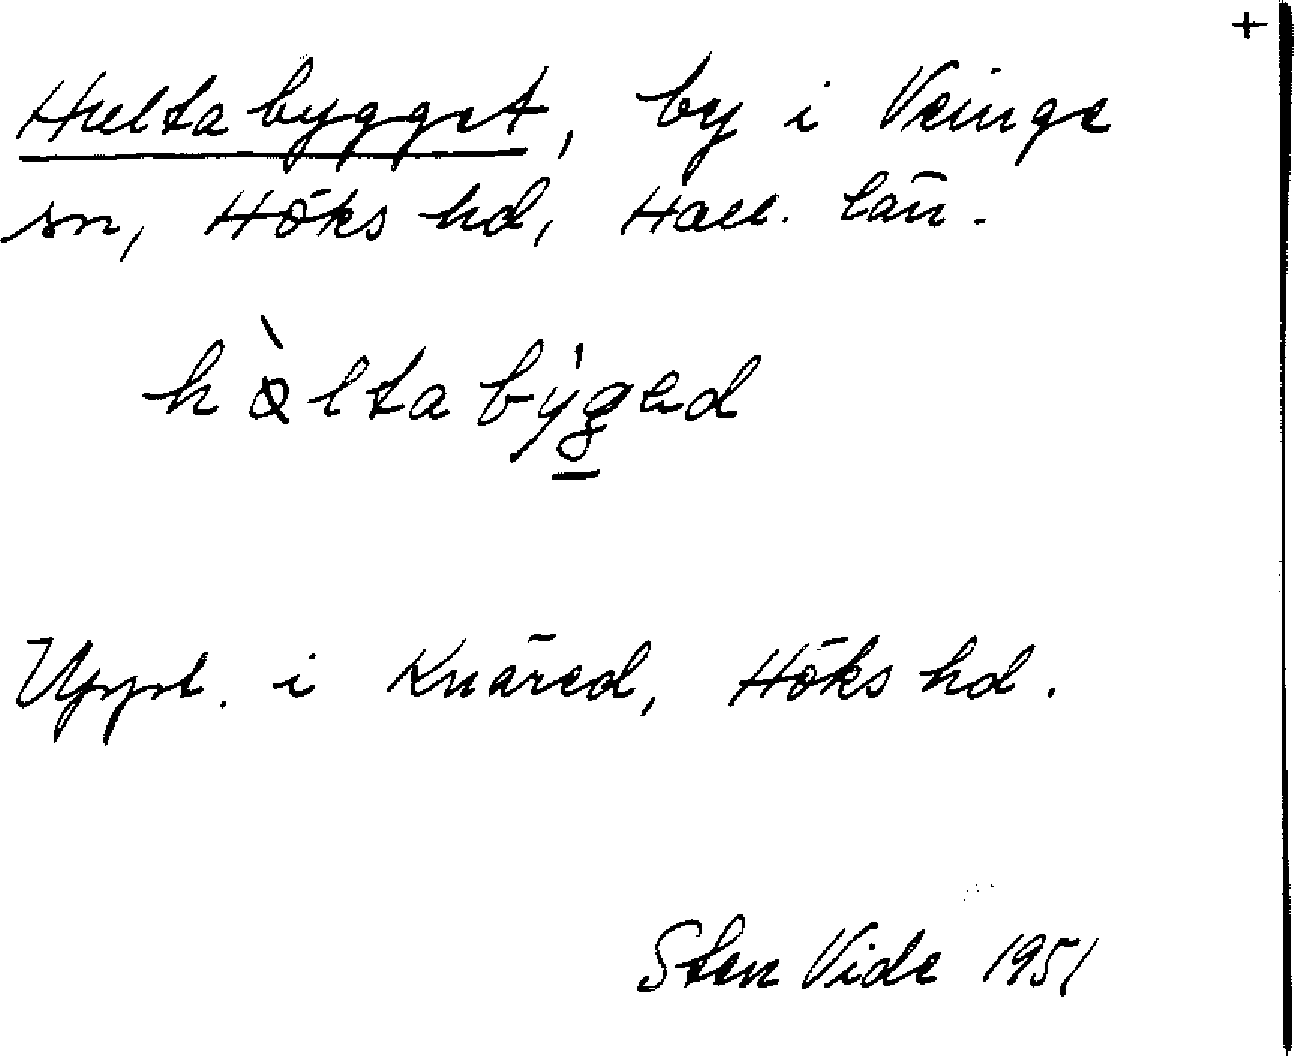 +
Hultabygget, by i Veinge
sn, Höks hd, Hall. län.
hàltabýged
Uppt. i Knäred, Höks hd.
Sten Vide 1951